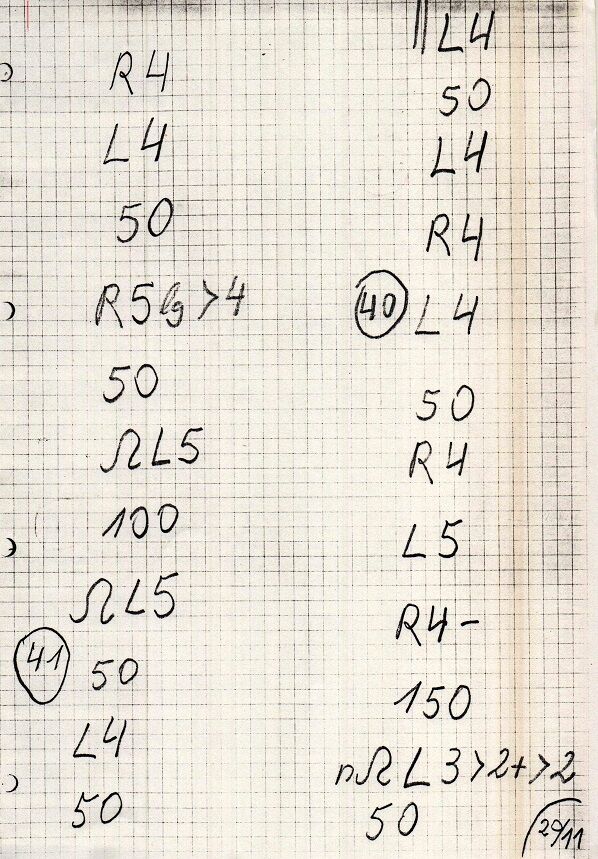 R4
L4
50
R5 lg >4
50
ΩL5
100
ΩL5
41
50
L4
50
||L4
50
L4
R4
40 L4
50
R4
L5
R4-
150
nΩL3>2+>2
50
29/11